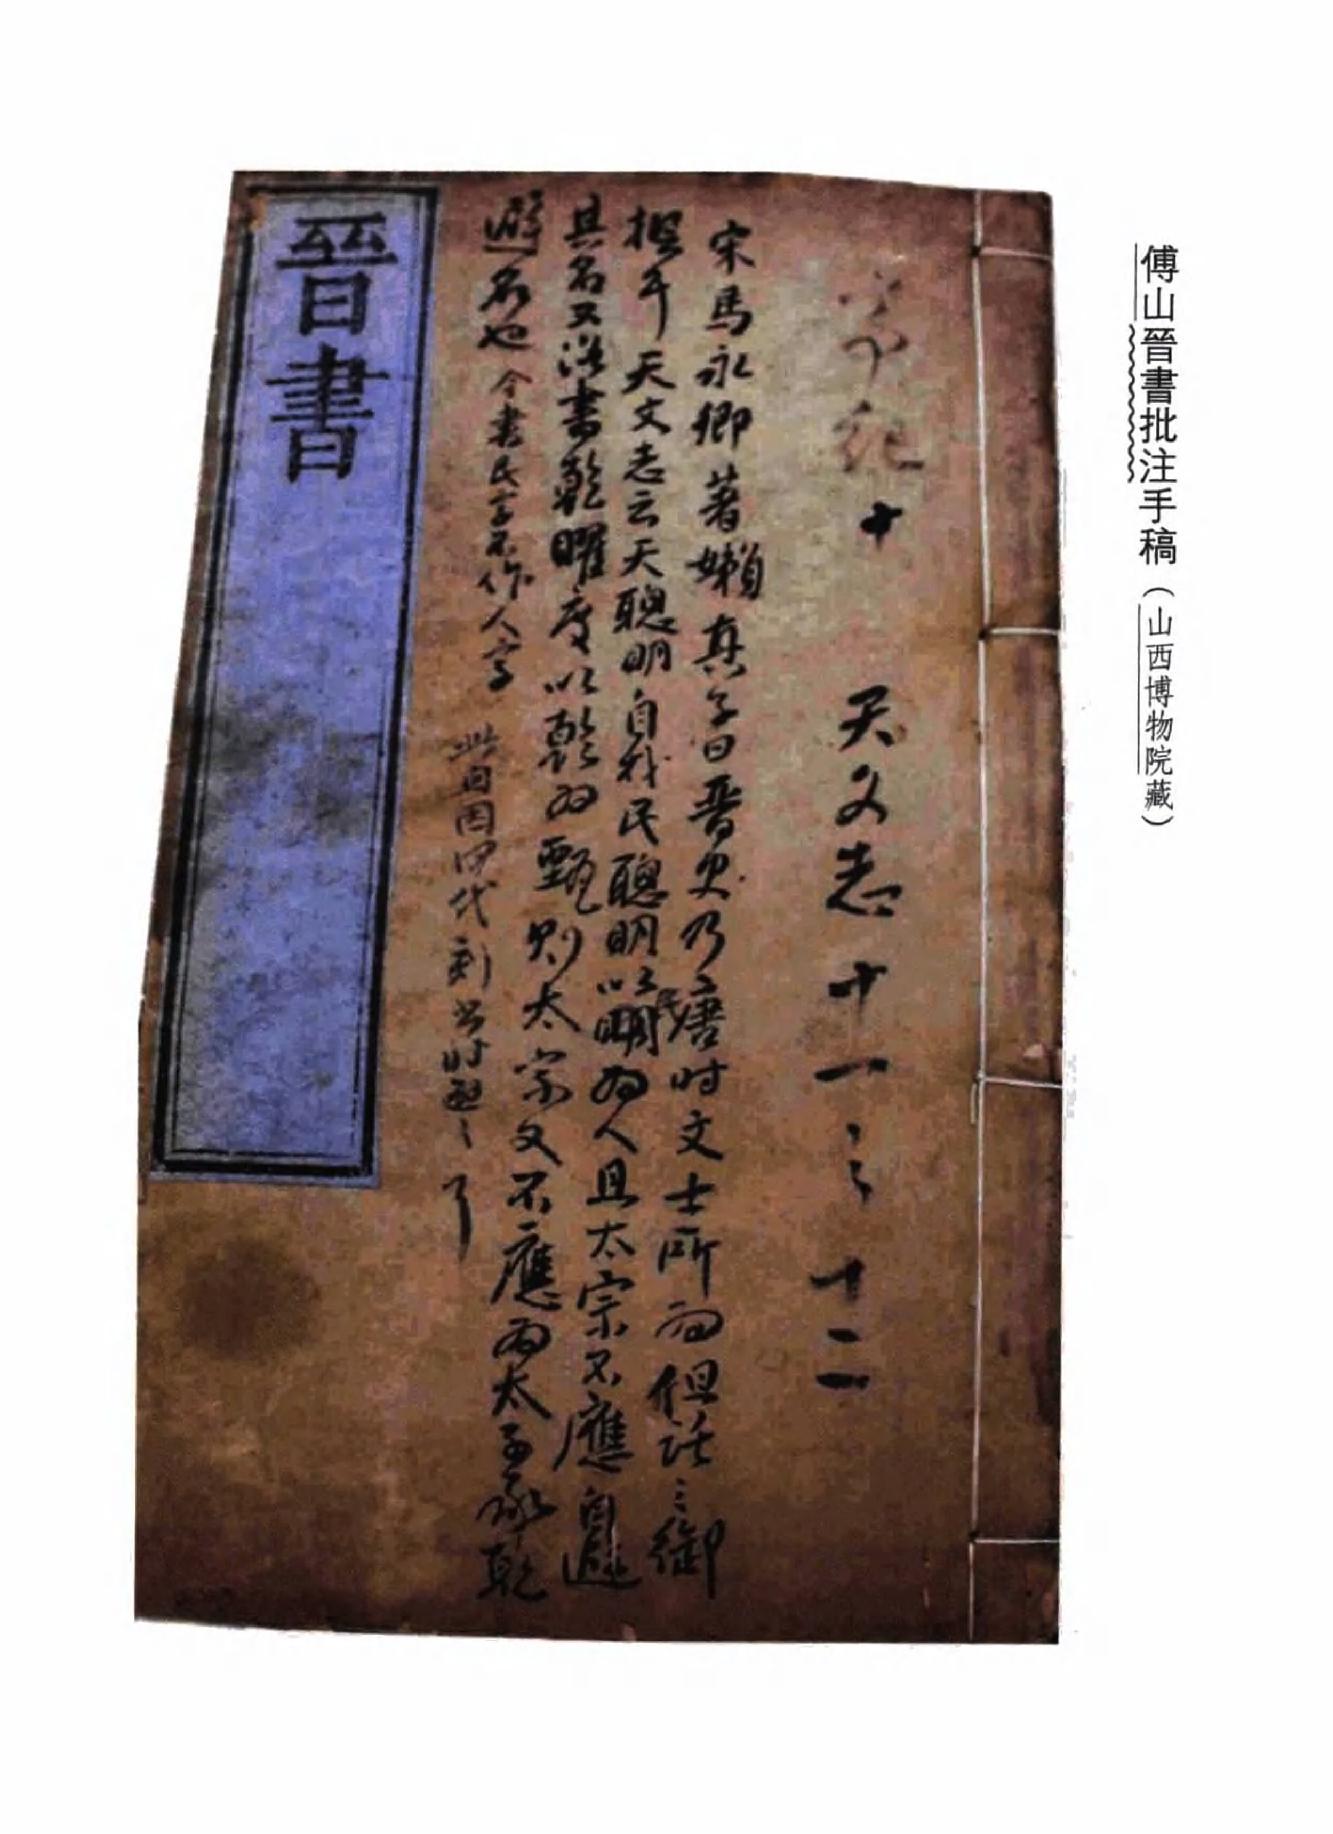 傅山晉書批注手稿（山西博物院藏）
帝紀十 天文志十一之十二
宋馬永卿著嬾真子曰晉史乃唐時文士所為但託之御
撰耳天文志云天聰明自我民聰明以民為人且太宗不應自避
其名又洛書乾曜度以乾為甄則太宗又不應為太子承乾
避名也 今書民字不作人字 此自因代刻書時
晉書